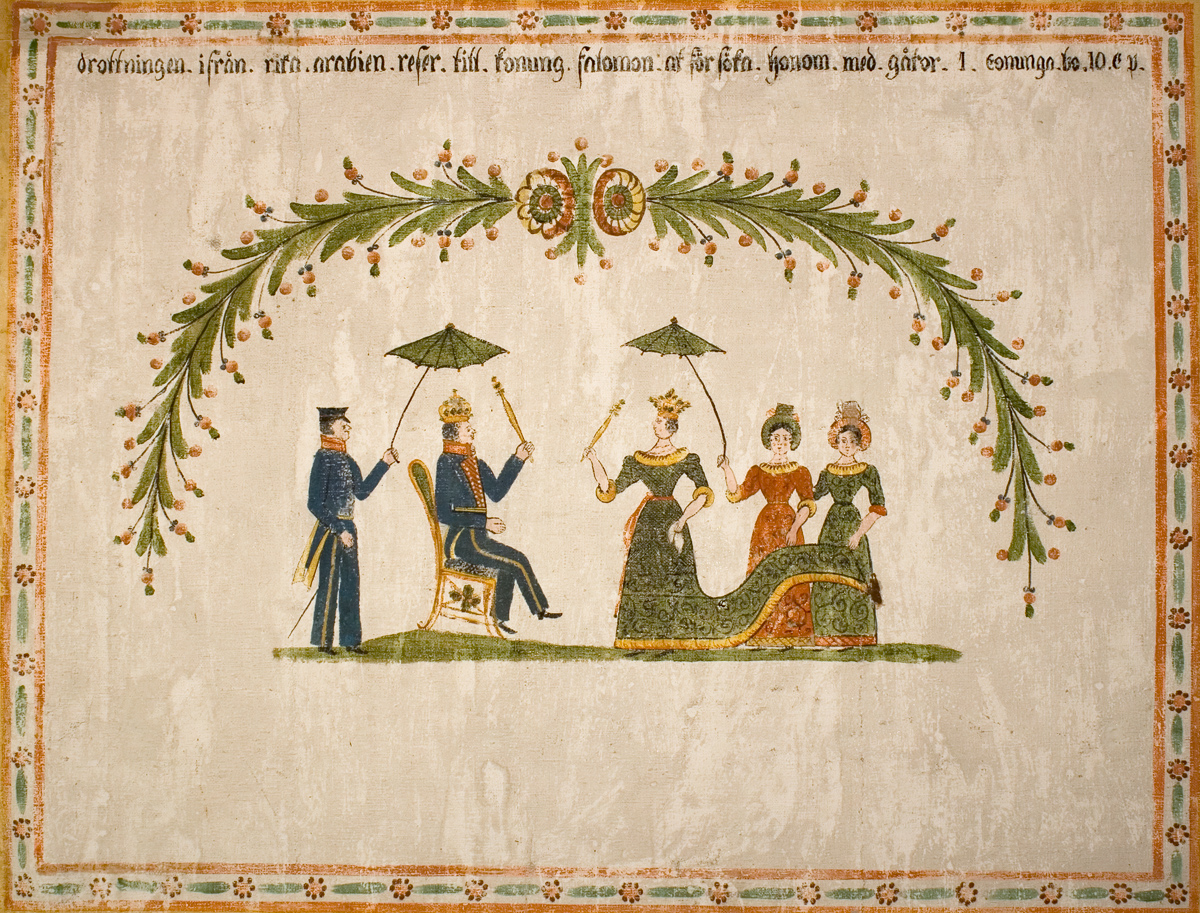 drottningen. ifrån. rika. arabien. reser. till. konung. salomon. at försöka. honom. med. gåtor. 1. conunga. bo. 10. C p.